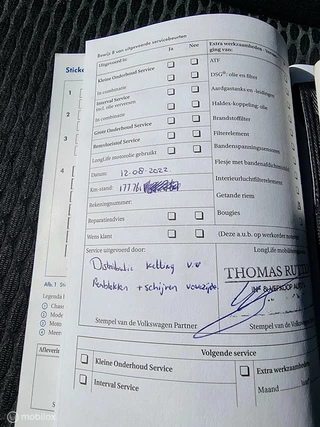 Sticke
1
2
3
4
Bewijs 8 van uitgevoerde servicebeurten
Uitgevoerd is:
Ja
Nee
Extra werkzaamheden
ging van:
Kleine Onderhoud Service
ATF
In combinatie
DSG®: olie en filter
Interval Service
incl. olie verversen
Aardgastanks en -leidingen
In combinatie
Haldex-koppeling: olie
Grote Onderhoud Service
Brandstoffilter
Remvloeistof Service
Filterelement
LongLife motorolie gebruikt
Bandenspanningssensoren
Datum: 12-08-2022
Flesje met bandenafdichtmiddel
Km-stand:
Interieurluchtfilterelement
Rekeningnummer:
Getande riem
Reparatieadvies
Bougies
Wens klant
(Deze a.u.b. op werkorder
Service uitgevoerd door:
LongLife
Distributie ketting v.v
Remblokken + schijven voorzijde.
THOMAS
Stempel van de Volkswagen Partner
Stempel van de Volks
Volgende service
Kleine Onderhoud Service
Extra werkzaamheden
Interval Service
Maand
Afb. 1
Legenda
Meer
Aflever
mobilox